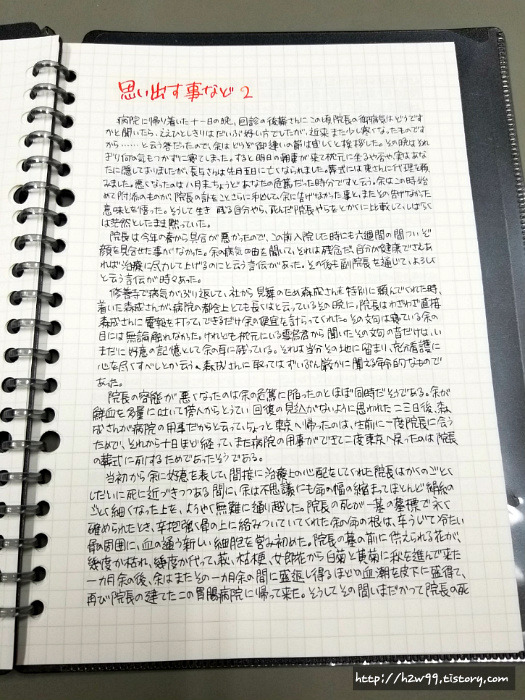 思い出す事など 2
病院に帰り着いた十一日の晩、回診の後藤さんにこの頃院長の御病気はどうです
かと聞いたら、ええひとしきりはだいぶ好い方でしたが、近来また少し寒くなったものです
から……と云う答だったので、余はどうぞ御逢いの節は宜しくと挨拶した。その晩はそれ
ぎり何の気もつかずに寝てしまった。すると明日の朝妻が来て枕元に坐るや否や、実はあな
たに隠しておりましたが長与さんは先月五日に亡くなられました。葬式には東さんに代理を頼
みました。悪くなったのは八月末ちょうどあなたの危篤だった時分ですと云う。余はこの時始
めて附添のものが、院長の訃をことさらに秘して、余に告げなかった事と、またその告げなかった
意味とを悟った。そうして生き残る自分やら、死んだ院長やらをとかくに比較して、しばらく
は茫然としたまま黙っていた。
院長は今年の春から具合が悪かったので、この前入院した時にも六週間の間ついぞ
顔を見合せた事がなかった。余の病気の由を聞いて、それは残念だ、自分が健康でさえあ
れば治療に尽力して上げるのにと云う言伝があった。その後も副院長を通じて、よろしく
と云う言伝が時々あった。
修善寺で病気がぶり返して、社から見舞のため森成さんを特別に頼んでくれた時、
着いた森成さんが、病院の都合上とても長くはと云っているその晩に、院長はわざわざ直接
森成さんに電報を打って、できるだけ余の便宜を計らってくれた。その文句は寝ている余の
目には無論触れなかった。けれども枕元にいる雪鳥君から聞いたその文句の音だけは、い
まだに好意の記憶として余の耳に残っている。それは当分その地に留まり、充分看護に
心を尽すべしとか云う、森成さんに取ってはずいぶん厳かに聞える命令的なもので
あった。
院長の容態が悪くなったのは余の危篤に陥ったのとほぼ同時だそうである。余が
鮮血を多量に吐いて傍人からとうてい回復の見込がないように思われた二三日後、森成
さんが病院の用事だからと云って、ちょっと東京へ帰ったのは、生前に一度院長に会う
ためで、それから十日ほど経って、また病院の用事ができて二度東京へ戻ったのは院長
の葬式に列するためであったそうである。
当初から余に好意を表して、間接に治療上の心配をしてくれた院長はかくのごとく
しだいに死に近づきつつある間に、余は不思議にも命の幅の縮まってほとんど絹糸の
ごとく細くなった上を、ようやく無難に通り越した。院長の死が一基の墓標で永く
確められたとき、辛抱強く骨の上に絡みついていてくれた余の命の根は、辛うじて冷たい
骨の周囲に、血の通う新しい細胞を営み初めた。院長の墓の前に供えられる花が、
幾度か枯れ、幾度か代って、萩、桔梗、女郎花から白菊と黄菊に秋を進んで来た
一カ月余の後、余はまたその一カ月余の間に盛返し得るほどの血潮を皮下に盛得て、
再び院長の建てたこの胃腸病院に帰って来た。そうしてその間いまだかつて院長の死
http://h2w99.tistory.com